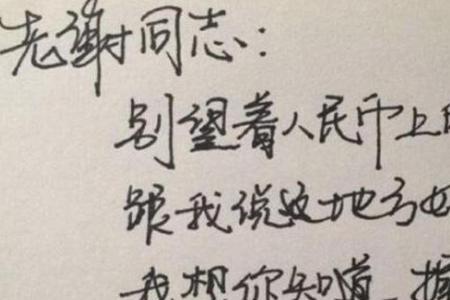 老谢同志：
别望着人民币上的
跟我说这地方好
我想你知道